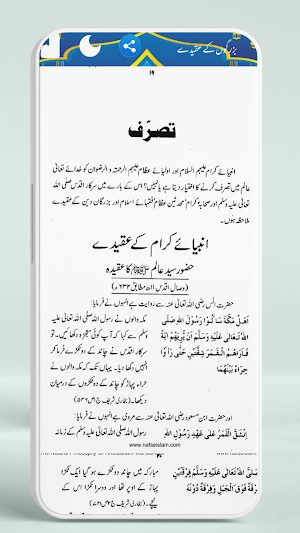 بزرگوں کے عقیدے
۱۹
تصرّف
انبیائے کرام علیہم السلام اور اولیائے عظام علیہم الرحمۃ و الرضوان کو خدائے تعالیٰ
عالم میں تصرف کرنے کا اختیار دیتا ہے یا نہیں؟ اس کے بارے میں سرکار اقدس صلی اللہ
تعالیٰ علیہ وسلم اور صحابۂ کرام محدثین عظام فقہائے اسلام اور بزرگان دین کے عقیدے
ملاحظہ ہوں۔
انبیائے کرام کے عقیدے
حضور سید عالم ﷺ کا عقیدہ
(وصال اقدس ۱۱ھ مطابق ۶۳۲ء)
حضرت انس رضی اللہ تعالیٰ عنہ سے روایت ہے انہوں نے فرمایا:
اَهْلَ مَكَّةَ سَاَلُوْا رَسُوْلَ اللّٰهِ صَلَّى مکہ والوں نے رسول اللہ صلی اللہ تعالیٰ علیہ
اللّٰهُ تَعَالٰى عَلَيْهِ وَسَلَّمَ اَنْ يُّرِيَهُمْ اٰيَةً وسلم سے کہا کہ آپ کوئی معجزہ دکھائیں۔ تو
فَاَرَاهُمُ الْقَمَرَ شِقَّتَيْنِ حَتّٰى رَاَوْا سرکار اقدس نے چاند کے دو ٹکڑے فرما کر
حِرَاءً بَيْنَهُمَا انہیں دکھا دیا۔ یہاں تک کہ مکہ والوں نے
حراء پہاڑ کو چاند کے دو ٹکڑوں کے درمیان
دیکھا۔ (بخاری شریف ج۱ ص۵۴۶)
اور حضرت ابن مسعود رضی اللہ تعالیٰ عنہ سے مروی ہے انہوں نے فرمایا:
اِنْشَقَّ الْقَمَرُ عَلٰى عَهْدِ رَسُوْلِ اللّٰهِ رسول اللہ صلی اللہ تعالیٰ علیہ وسلم کے زمانہ
www.nafseislam.com
۲۰
صَلَّى اللّٰهُ تَعَالٰى عَلَيْهِ وَسَلَّمَ فِرْقَتَيْنِ مبارکہ میں چاند دو ٹکڑے ہو گیا ایک ٹکڑا
فِرْقَةً فَوْقَ الْجَبَلِ وَفِرْقَةً دُوْنَهٗ پہاڑ کے اوپر تھا اور دوسرا ٹکڑا اس کے
نیچے۔ (بخاری شریف ج۲ ص۷۲۱)